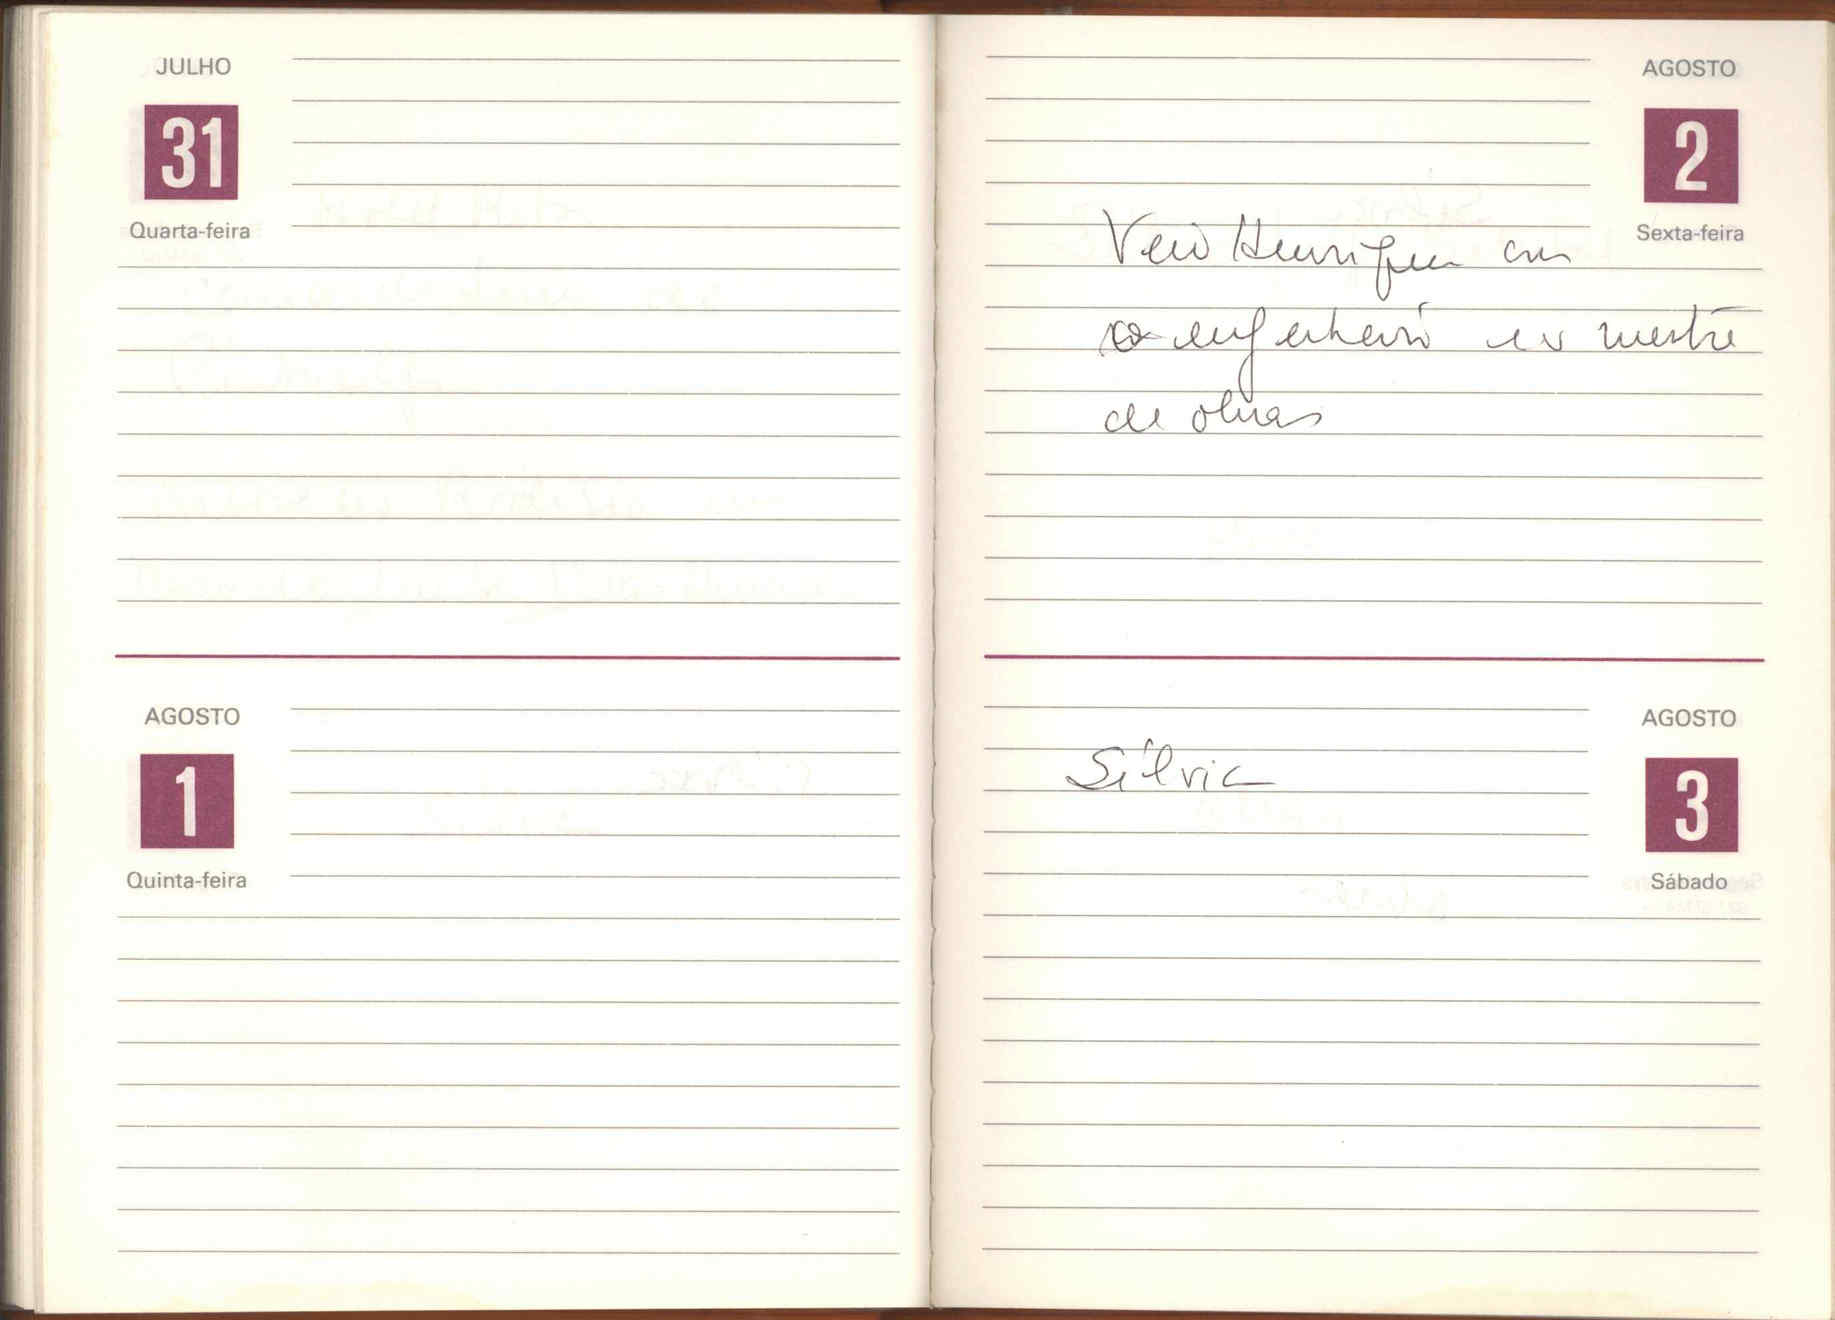 JULHO
31
Quarta-feira
AGOSTO
1
Quinta-feira
AGOSTO
2
Sexta-feira
Veio Henrique com
o engenheiro e o mestre
de obras
AGOSTO
3
Sábado
Sílvia